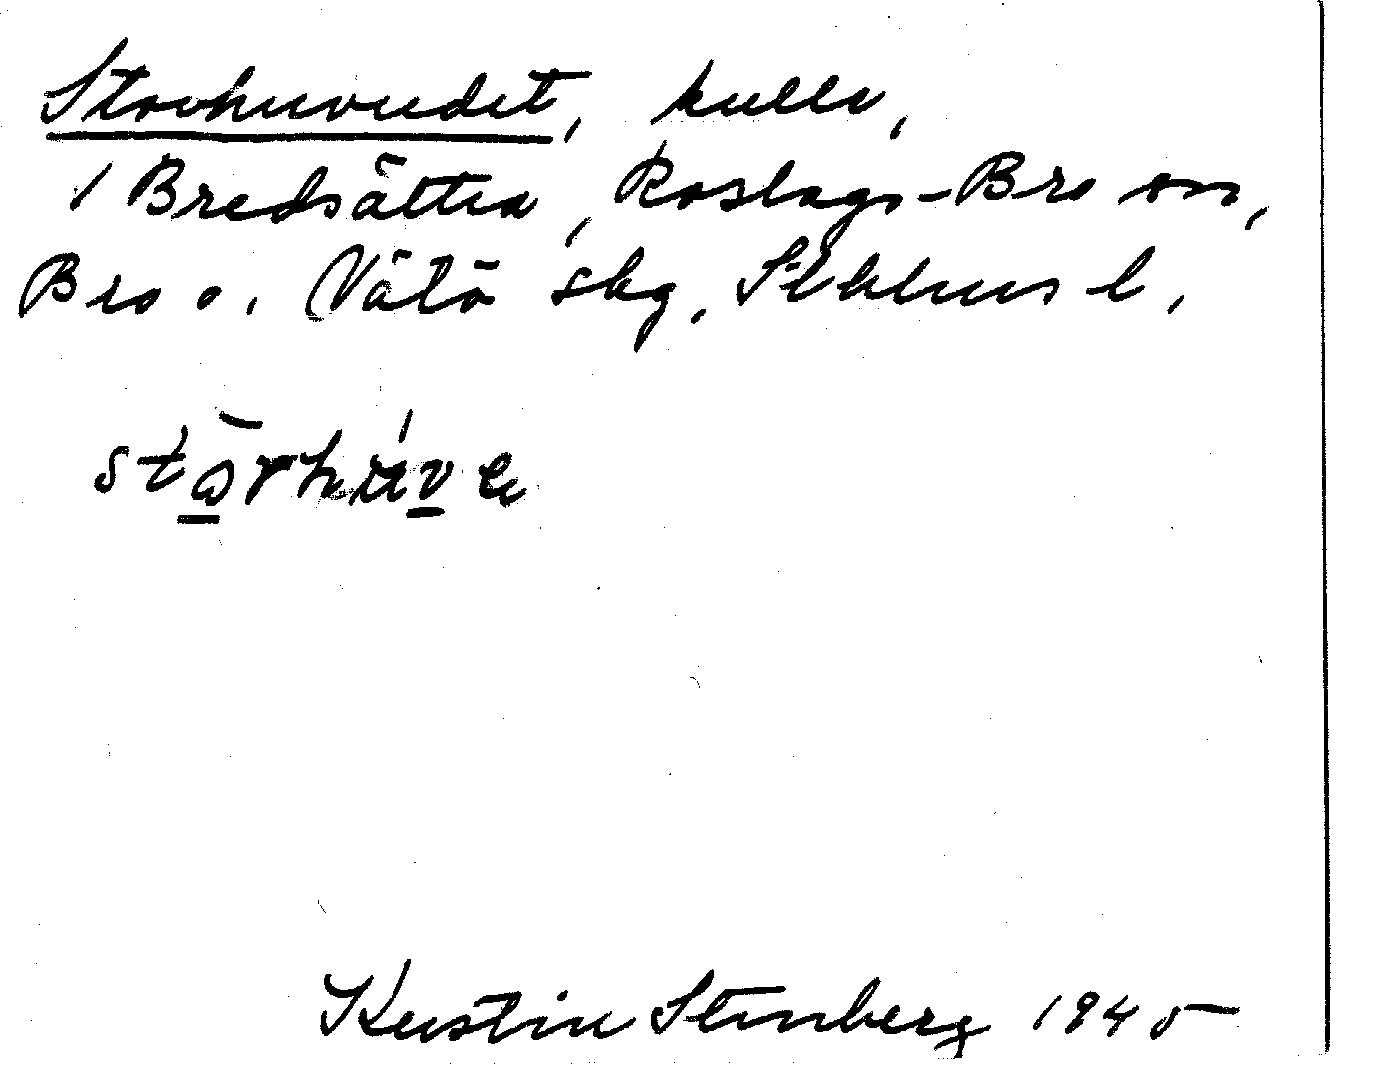 Storhuvudet, kulle,
i Bredsättra, Roslags-Bro sn,
Bro o. Vätö skg, Sthlms l.
Kerstin Stenberg 1945